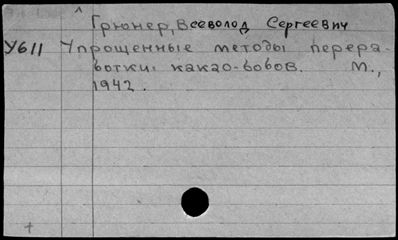 Грюнер, Всеволод Сергеевич
У611 Упрощенные методы перера-
ботки какао-бобов. М.,
1942.